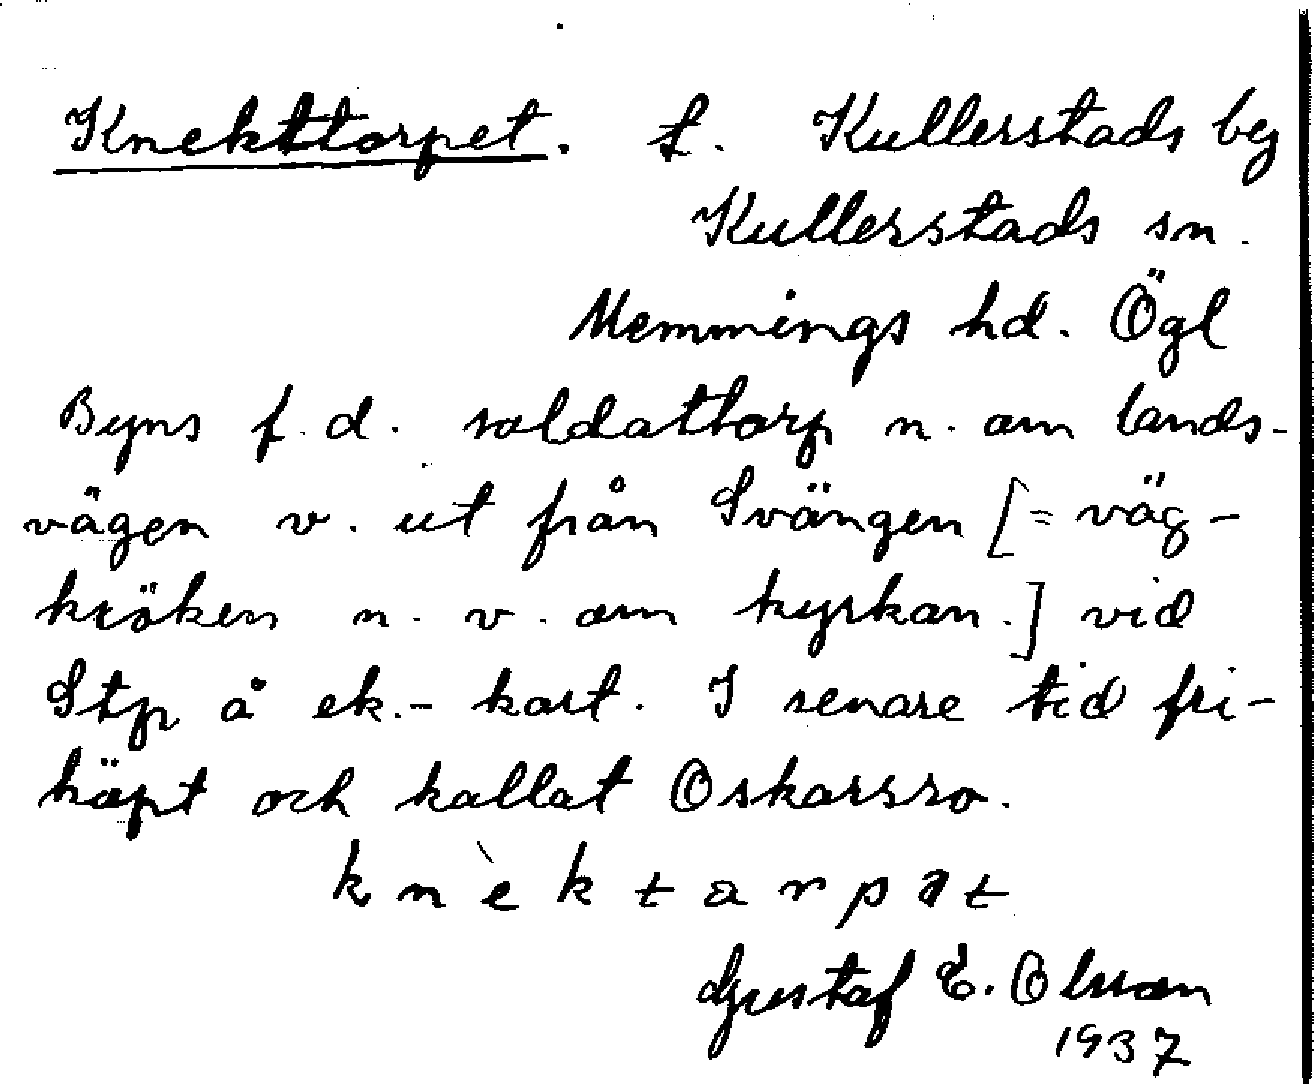 Knekttorpet. t. Kullerstads by
Kullerstads sn.
Memmings hd. Ögl
Byns f.d. soldattorp n. om lands-
vägen v. ut från Svängen [= väg-
kröken n.v. om kyrkan.] vid
Stp å ek.-kart. I senare tid fri-
köpt och kallat Oskarsro.
knèktarpət
Gustaf E. Olsson
1937